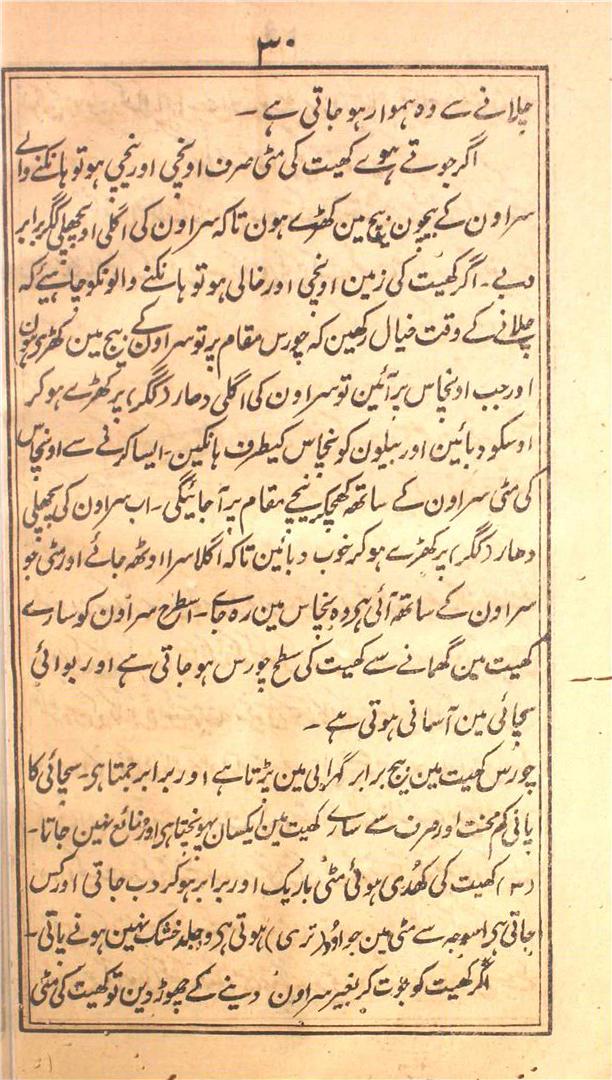 ۳۰
چلانے سے وہ ہموار ہو جاتی ہے ۔
اگر جوتے ہوے کھیت کی مٹی صرف اونچی اور نیچی ہو تو ہانکنے والے
سراون کے بیچون بیچ مین کھڑے ہون تاکہ سراون کی اگلی او پچھلی گگر برابر
دبے ۔ اگر کھیت کی زمین اونچی اور خالی ہو تو ہانکنے والونکو چاہیے کہ
چلانے کے وقت خیال رکھین کہ چورس مقام پر تو سراون کے بیچ مین کھڑی ہون
اور جب اونچاس پر آئین تو سراون کی اگلی دھار (گگر) پر کھڑے ہو کر
اوسکو دبائین اور بیلون کو نچاس کیطرف ہانکین ۔ ایسا کرنے سے اونچاس
کی مٹی سراون کے ساتھ کھچکر نیچے مقام پر آجائیگی ۔ اب سراون کی پچھلی
دھار (گگر) پر کھڑے ہو کر خوب دبائین تاکہ اگلا سرا اوٹھ جائے اور مٹی جو
سراون کے ساتھ آئی ہی وہ نچاس مین رہ جاے ۔ اسطرح سراون کو سارے
کھیت مین گھمانے سے کھیت کی سطح چورس ہو جاتی ہے اور بوائی
سچائی مین آسانی ہوتی ہے ۔
چورس کھیت مین بیج برابر گہرائی مین پڑتا ہے اور برابر جمتا ہی ۔ سچائی کا
پانی کم محنت اور صرف سے سارے کھیت مین ایکسان پہونچتا ہی اور ضائع نہین جاتا ۔
(۳) کھیت کی کھدی ہوئی مٹی باریک اور برابر ہو کر دب جاتی اور کس
جاتی ہی اسوجہ سے مٹی مین جو اوُد (تری) ہوتی ہی وہ جلد خشک نہین ہونے پاتی ۔
اگر کھیت کو جوت کر بغیر سراون دینے کے چھوڑ دین تو کھیت کی مٹی